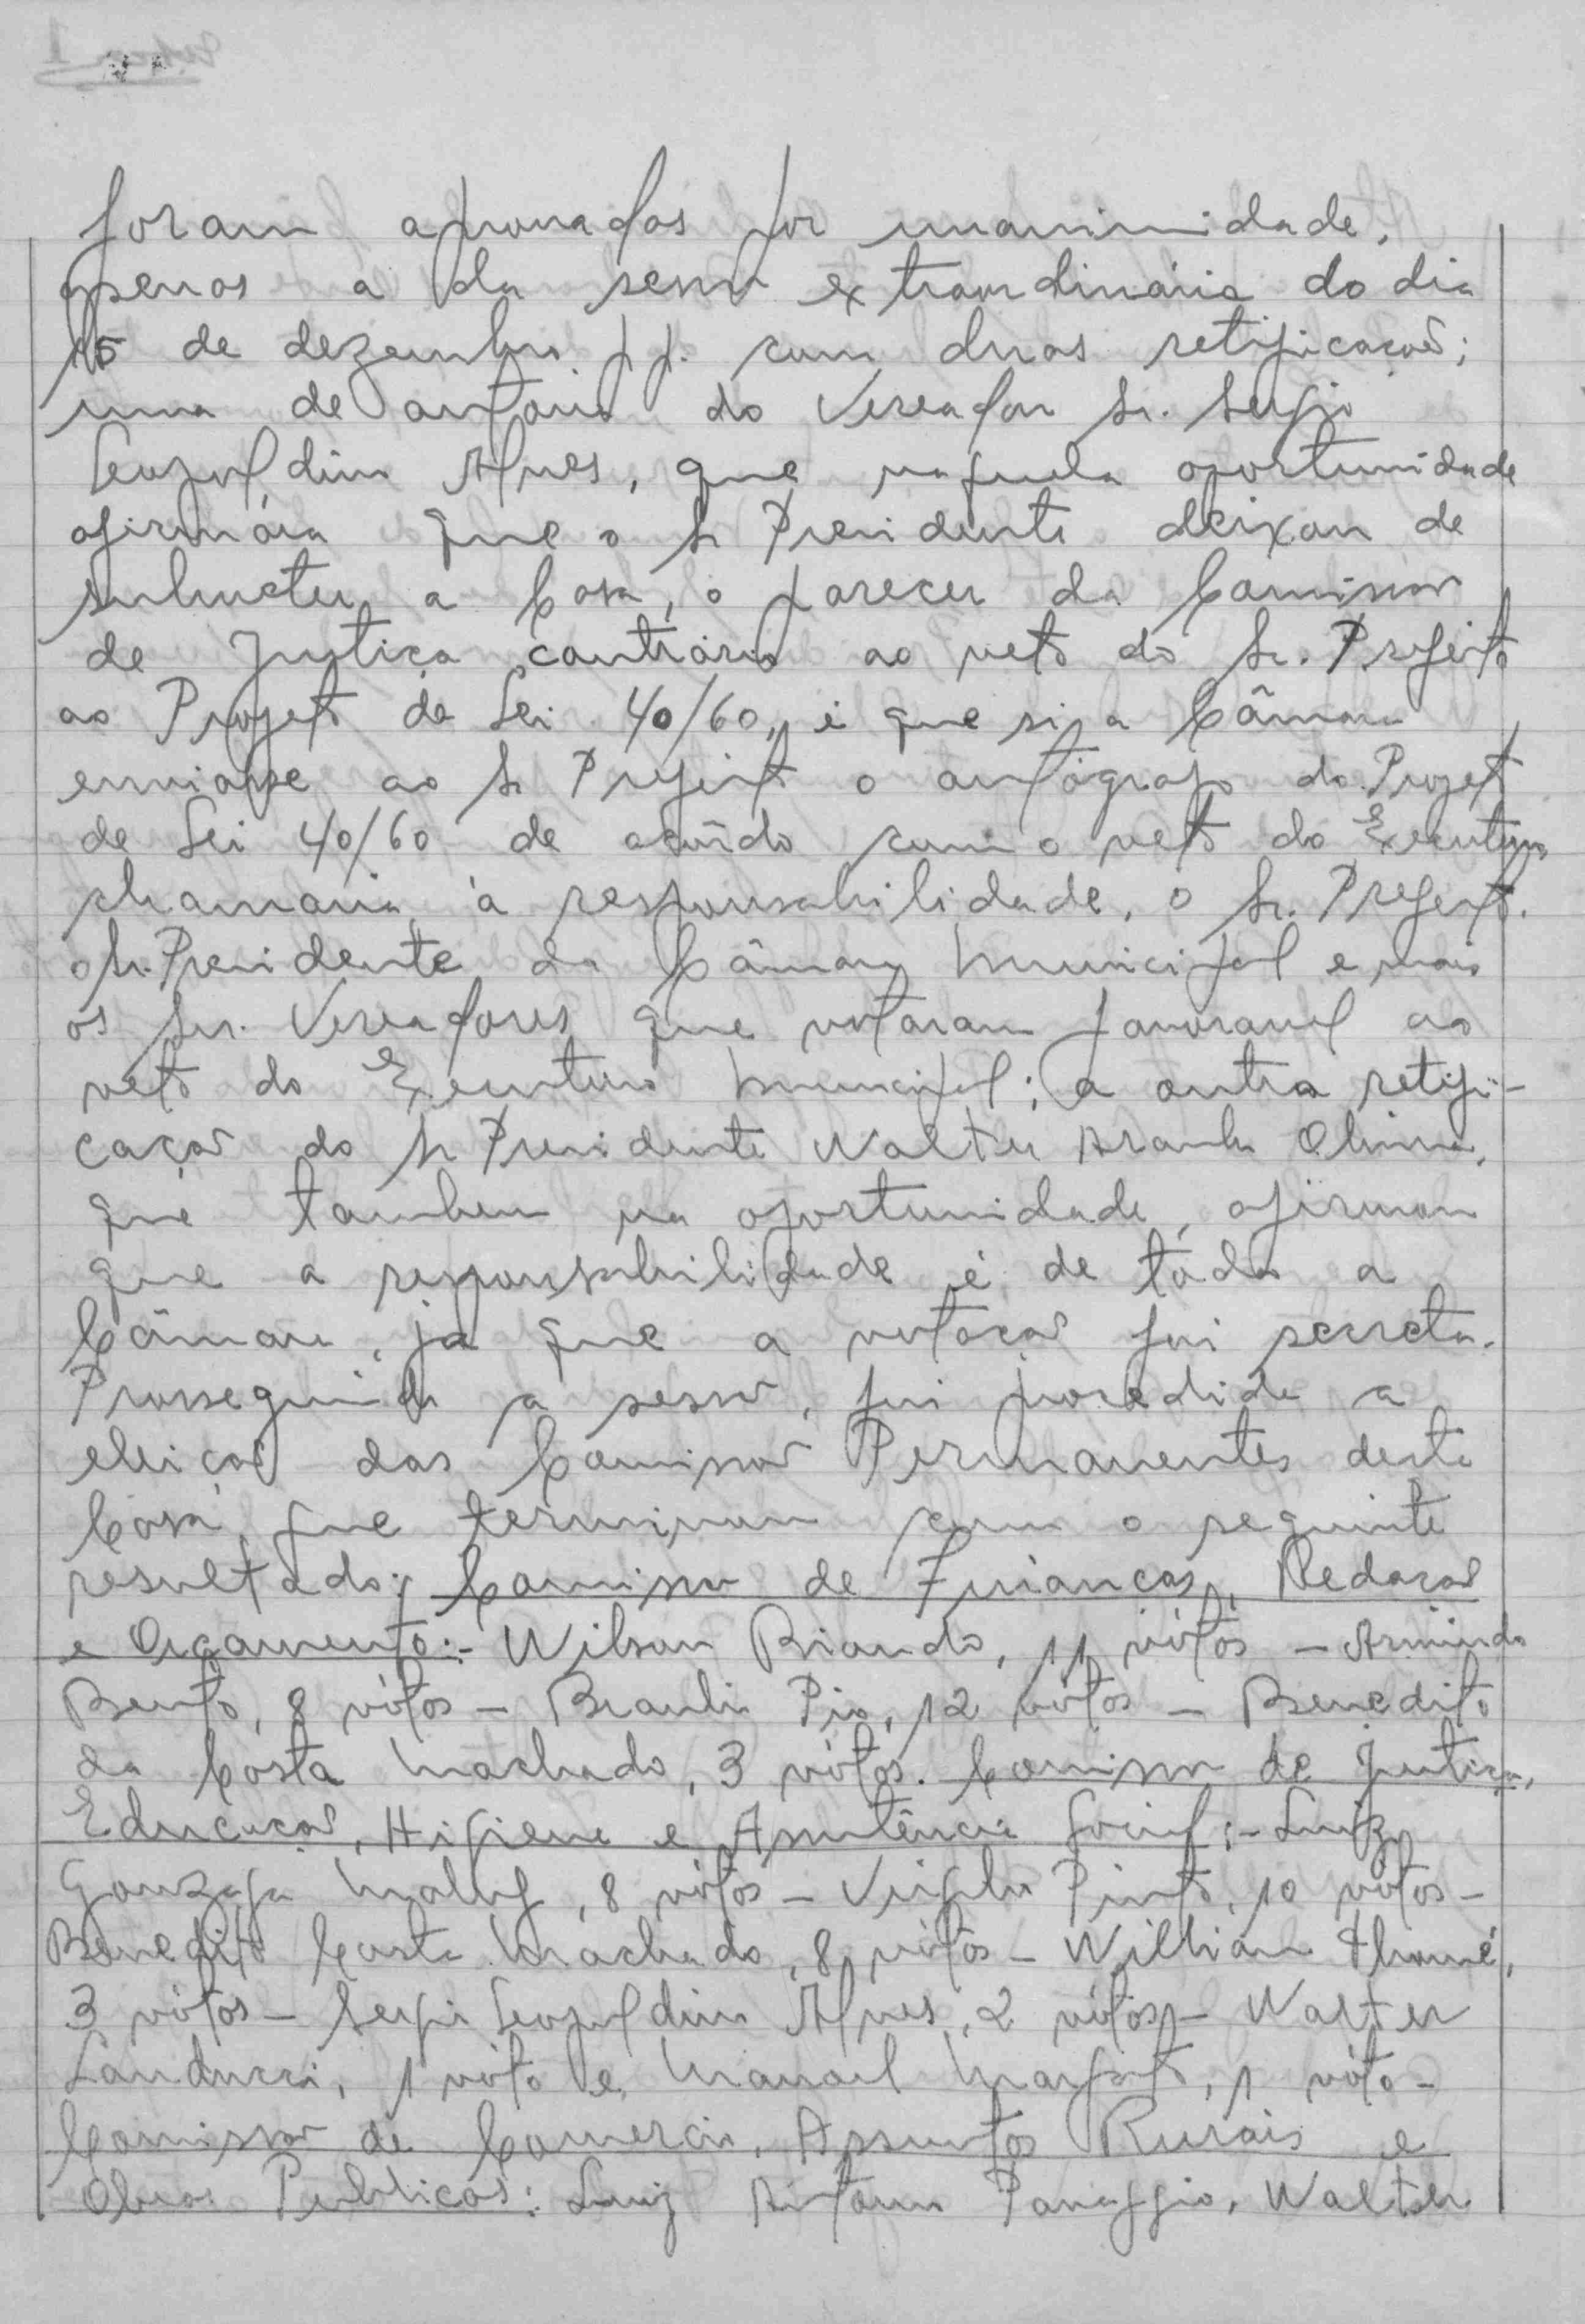 foram aprovadas por unanimidade,
apenas a da sessão extraordinária do dia
15 de dezembro pp. com duas retificações;
uma de autoria do Vereador Sr. Sergio
Leopoldino Alves, que naquela oportunidade
afirmára que o Sr Presidente deixou de
submeter a Casa, o parecer da Comissão
de Justiça contrário ao veto do Sr. Prefeito
ao Projeto de Lei 40/60, é que si a Câmara
enviasse ao Sr Prefeito o autógrafo do Projeto
de Lei 40/60 de acôrdo com o veto do Executivo
chamaria à responsabilidade, o Sr. Prefeito.
o Sr. Presidente da Câmara Municipal e mais
os Srs. Vereadores que votaram favoravel ao
veto do Executivo Municipal; a outra retifi-
cação do Sr Presidente Walter Aranha Oliveira,
que tambem na oportunidade, afirmou
que a responsabilidade é de tôda a
Câmara, já que a votação foi secreta.
Prosseguindo a sessão, foi procedida a
eleição das Comissão Permanentes desta
Casa, que terminou com o seguinte
resultado: Comissão de Finanças, Redação
e Orçamento:- Wilson Biondo, 11 vótos - Armindo
Bento, 8 vótos - Braulio Pio, 12 vótos - Benedito
da Costa Machado, 3 vótos. Comissão de Justiça,
Educação, Higiene e Assistência Social:- Luiz
Gonzaga Maluf, 8 vótos - Virgilio Pinto, 10 vótos -
Benedito Costa Machado, 8 vótos - Willian Thomé,
3 vótos - Sergio Leopoldino Alves, 2 vótos - Walter
Landucci, 1 vóto e Manoel 1 vóto -
Comissão de Comercio, Assuntos Rurais e
Obras Publicas: Luiz Antonio Panaggio, Walter